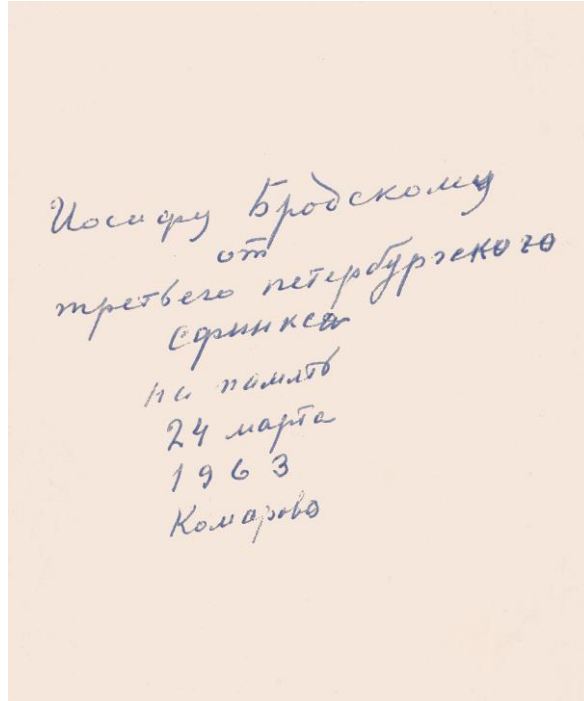 Иосифу Бродскому
от
третьего петербургского
сфинкса
на память
24 марта
1963
Комарово